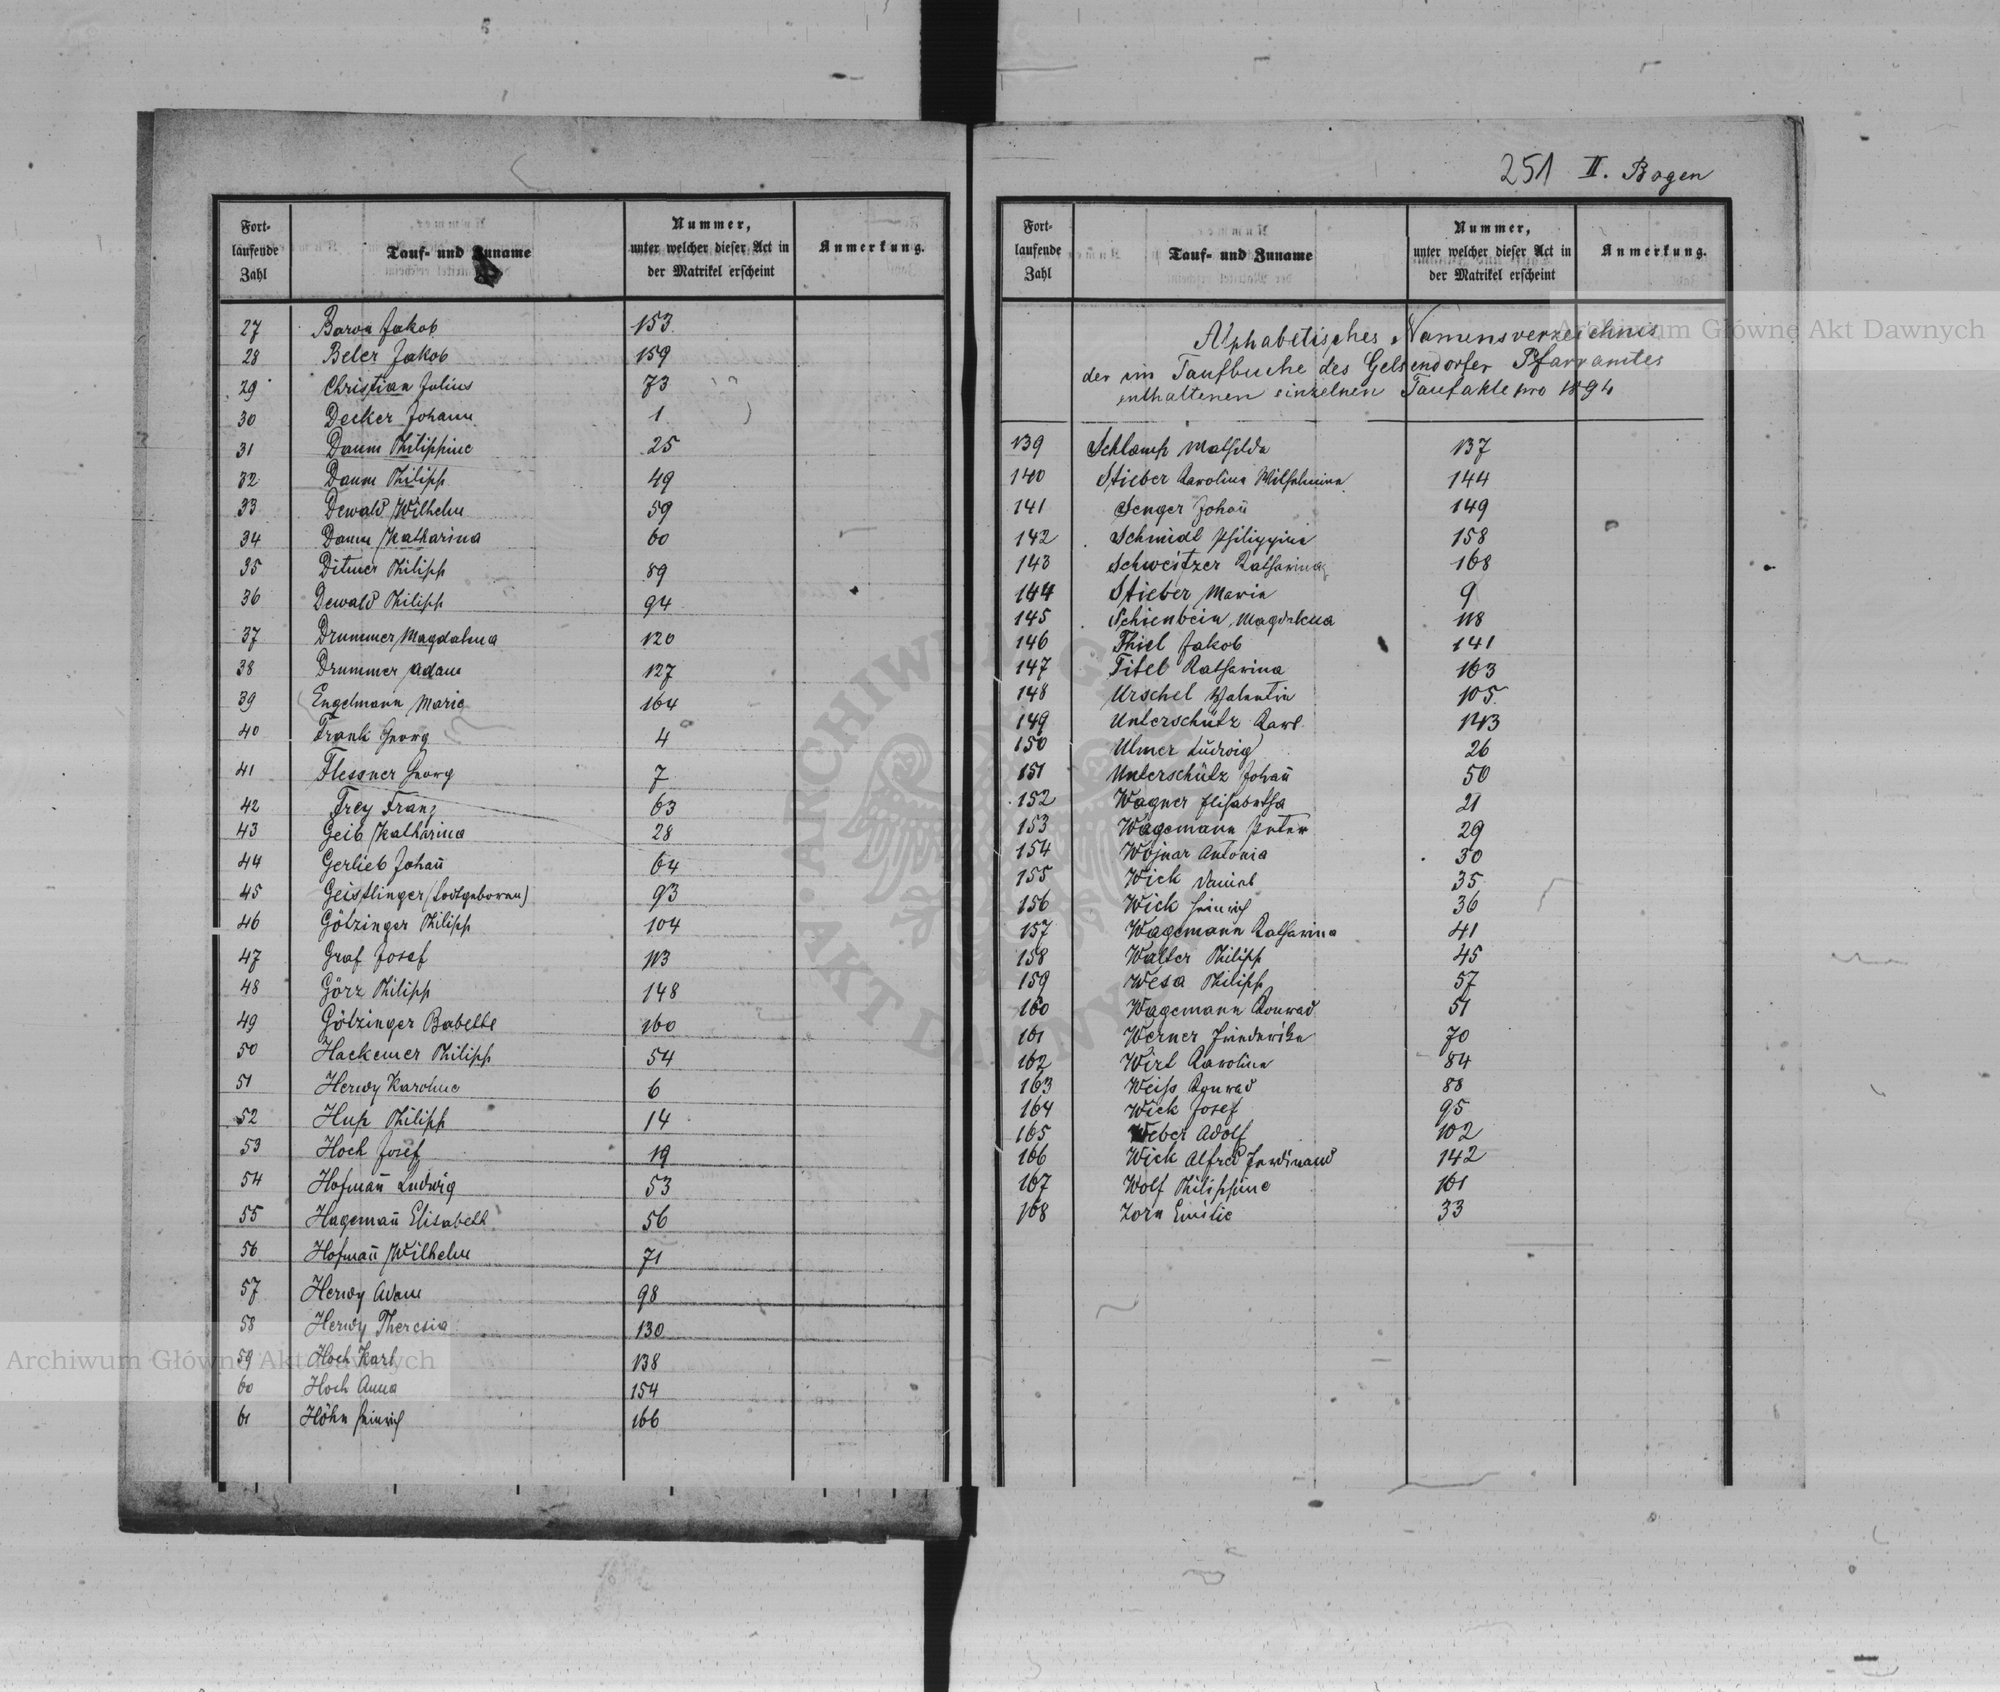 Fort-
laufende
Zahl
Tauf- und Zuname
Nummer,
unter welcher dieser Act in
der Matrikel erscheint
Anmerkung.
27 Baron Jakob 153
28 Beler Jakob 159
29 Christian Julius 73
30 Decker Johann 1
31 Daum Philippine 25
32 Daum Philipp 49
33 Dewald Wilhelm 59
34 Daum Katharina 60
35 Ditmer Philipp 89
36 Dewald Philipp 94
37 Drummer Magdalena 120
38 Drummer Adam 127
39 Engelmann Marie 164
40 Frank Georg 4
41 Flessner Georg 7
42 Frey Franz 63
43 Geib Katharina 28
44 Gerlieb Johañ 64
45 Geistlinger (Todtgeboren) 93
46 Götzinger Philipp 104
47 Graf Josef 113
48 Görz Philipp 148
49 Götzinger Babette 160
50 Hackemer Philipp 54
51 Herwy Karoline 6
52 Hup Philipp 14
53 Hoch Josef 19
54 Hofmañ Ludwig 53
55 Hagemañ Elisabeth 56
56 Hofmañ Wilhelm 71
57 Herwy Adam 98
58 Herwy Theresia 130
59 Hoch Karl 138
60 Hoch Anna 154
61 Höhn Heinrich 166
251 II. Bogen
Fort-
laufende
Zahl
Tauf- und Zuname
Nummer,
unter welcher dieser Act in
der Matrikel erscheint
Anmerkung.
Alphabetisches Namensverzeichnis
der im Taufbuche des Gelsendorfer Pfarramtes
enthaltenen einzelnen Taufakte pro 1894
139 Schlamp Mathilda 137
140 Stieber Karolina Wilhelmina 144
141 Senger Johañ 149
142 Schmidt Philippine 158
143 Schweitzer Katharina 168
144 Stieber Maria 9
145 Schienbein Magdalena 118
146 Thiel Jakob 141
147 Titel Katharina 163
148 Urschel Valentin 105
149 Unterschütz Karl 143
150 Ulmer Ludwig 26
151 Unterschütz Johañ 50
152 Wagner Elisabetha 21
153 Wagemann Peter 29
154 Wojnar Antonia 30
155 Wick Daniel 35
156 Wick Heinrich 36
157 Wagemann Katharina 41
158 Walter Philipp 45
159 Wesa Philipp 57
160 Wagemann Konrad 51
161 Werner Friederike 70
162 Wirt Karolina 84
163 Weiß Konrad 88
164 Wick Josef 95
165 Weber Adolf 102
166 Wick Alfred Ferdinand 142
167 Wolf Philippine 161
168 Zorn Emilie 33
Archiwum Główne Akt Dawnych
Archiwum Główne Akt Dawnych